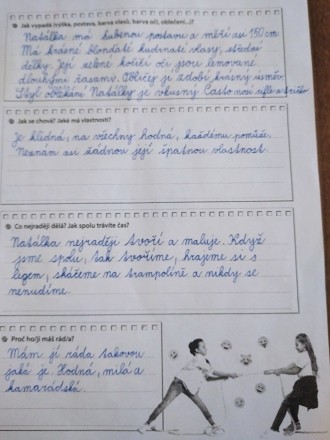 Jak vypadá (výška, postava, barva vlasů, barva očí, oblečení...)?
Natálka má hubenou postavu a měří asi 150 cm.
Má krásné blonďaté kudrnaté vlasy, střední
délky. Její zelené kočičí oči jsou lemované
dlouhými řasami. Obličej jí zdobí krásný úsměv.
Styl oblékání Natálky je vkusný. Často nosí rifle a tričko
Jak se chová? Jaké má vlastnosti?
Je klidná, na všechny hodná, každému pomůže.
Neznám asi žádnou její špatnou vlastnost.
Co nejraději dělá? Jak spolu trávíte čas?
Natálka nejraději tvoří a maluje. Když
jsme spolu, tak tvoříme, hrajeme si s
legem, skáčeme na trampolíně a nikdy se
nenudíme.
Proč ho/ji máš rád/a?
Mám jí ráda takovou
jaká je. Hodná, milá a
kamarádská.